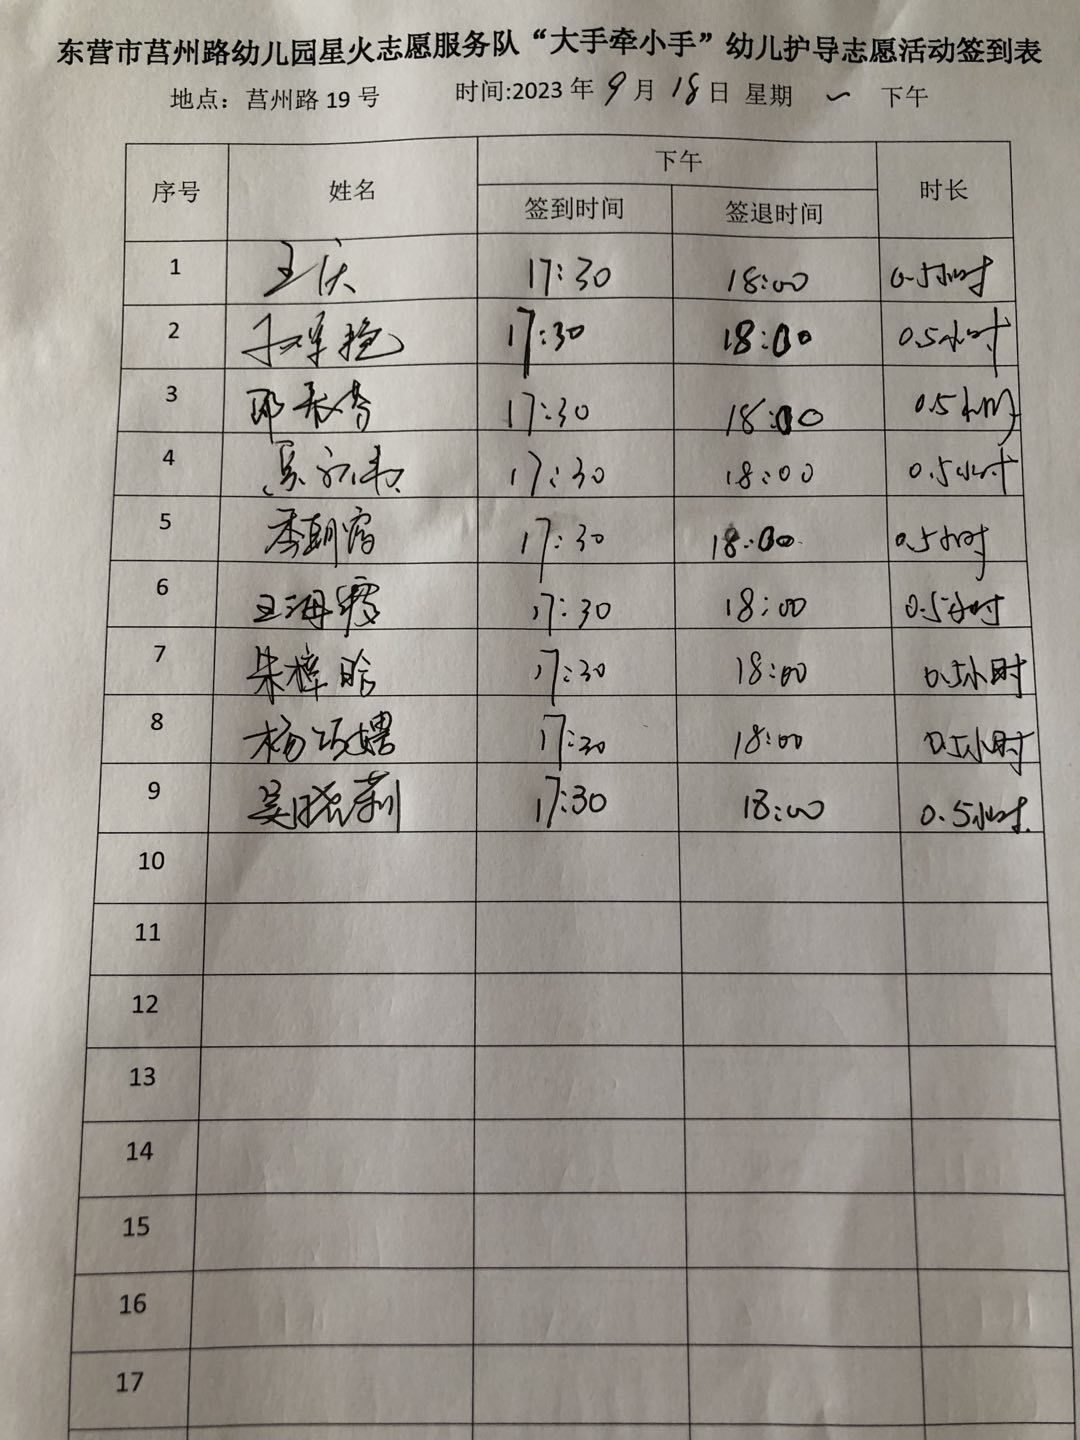 东营市莒州路幼儿园星火志愿服务队“大手牵小手”幼儿护导志愿活动签到表
地点：莒州路 19 号 时间:2023 年 9 月 18 日 星期 一 下午
序号 姓名 下午 时长
签到时间 签退时间
1 王庆 17:30 18:00 0.5小时
2 17:30 18:00 0.5小时
3 邓 17:30 18:00 0.5小时
4 17:30 18:00 0.5小时
5 李朝霞 17:30 18:00 0.5小时
6 王海霞 17:30 18:00 0.5小时
7 朱梓晗 17:30 18:00 0.5小时
8 杨巧娉 17:30 18:00 0.5小时
9 吴晓莉 17:30 18:00 0.5小时
10
11
12
13
14
15
16
17